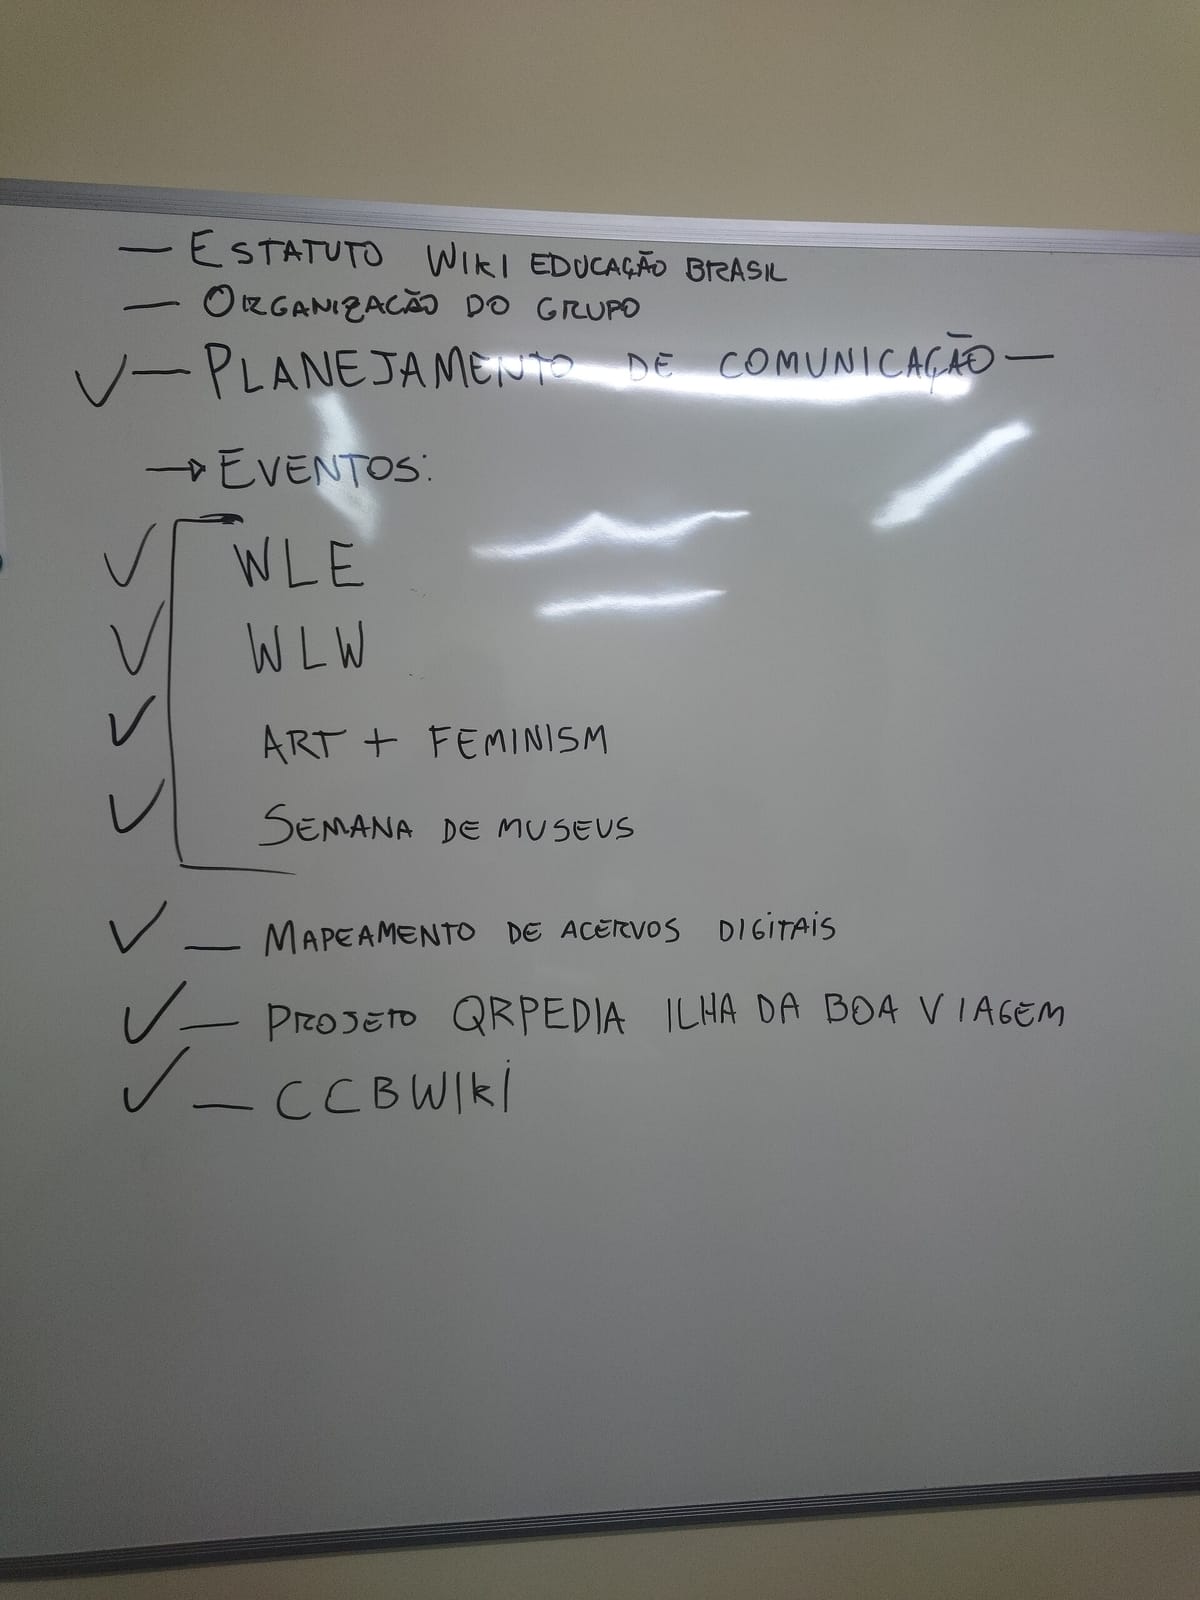 — ESTATUTO WIKI EDUCAÇÃO BRASIL
— ORGANIZACÃO DO GRUPO
✓ — PLANEJAMENTO DE COMUNICAÇÃO —
→ EVENTOS:
✓ WLE
✓ WLW
✓ ART + FEMINISM
✓ SEMANA DE MUSEUS
✓ — MAPEAMENTO DE ACERVOS DIGITAIS
✓ — PROJETO QRPEDIA ILHA DA BOA VIAGEM
✓ — CCBWIKI